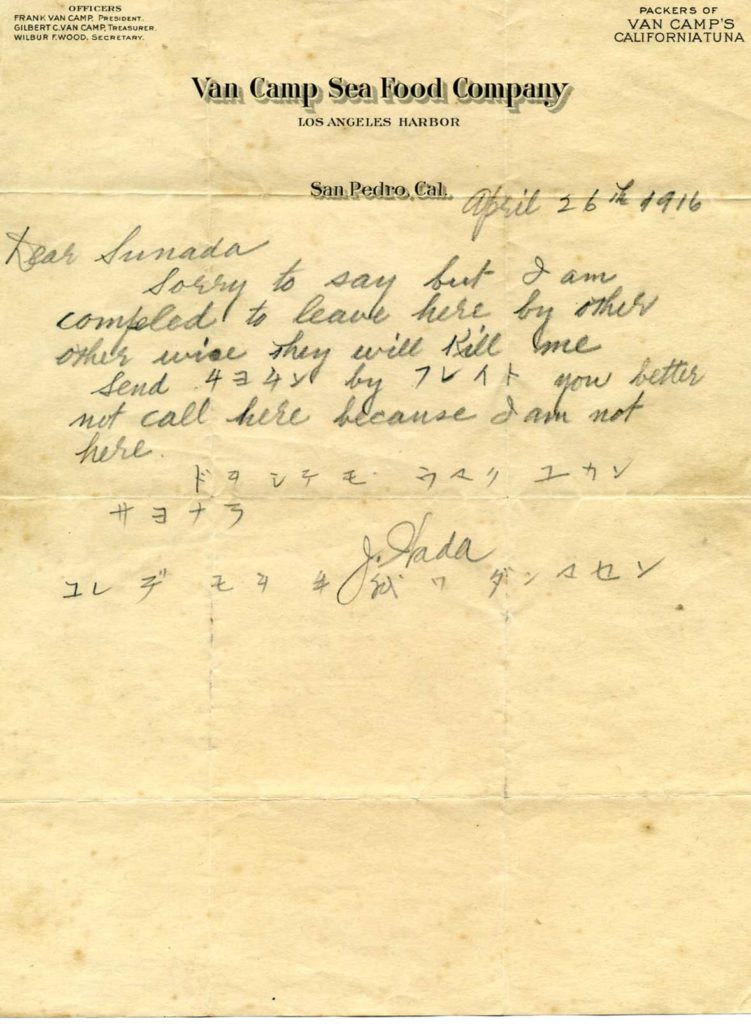 OFFICERS
FRANK VAN CAMP, PRESIDENT.
GILBERT C. VAN CAMP, TREASURER.
WILBUR F. WOOD, SECRETARY.
PACKERS OF
VAN CAMP'S
CALIFORNIA TUNA
Van Camp Sea Food Company
LOS ANGELES HARBOR
San Pedro, Cal.
April 26th 1916
Dear Sunada
Sorry to say but I am
compeled to leave here by other
other wise they will Kill me
Send チヨチン by フレイト you better
not call here because I am not
here.
ドヲシテモ ウマク ユカン
サヨナラ
J. Wada
ユレデ モヲ ワ マセン